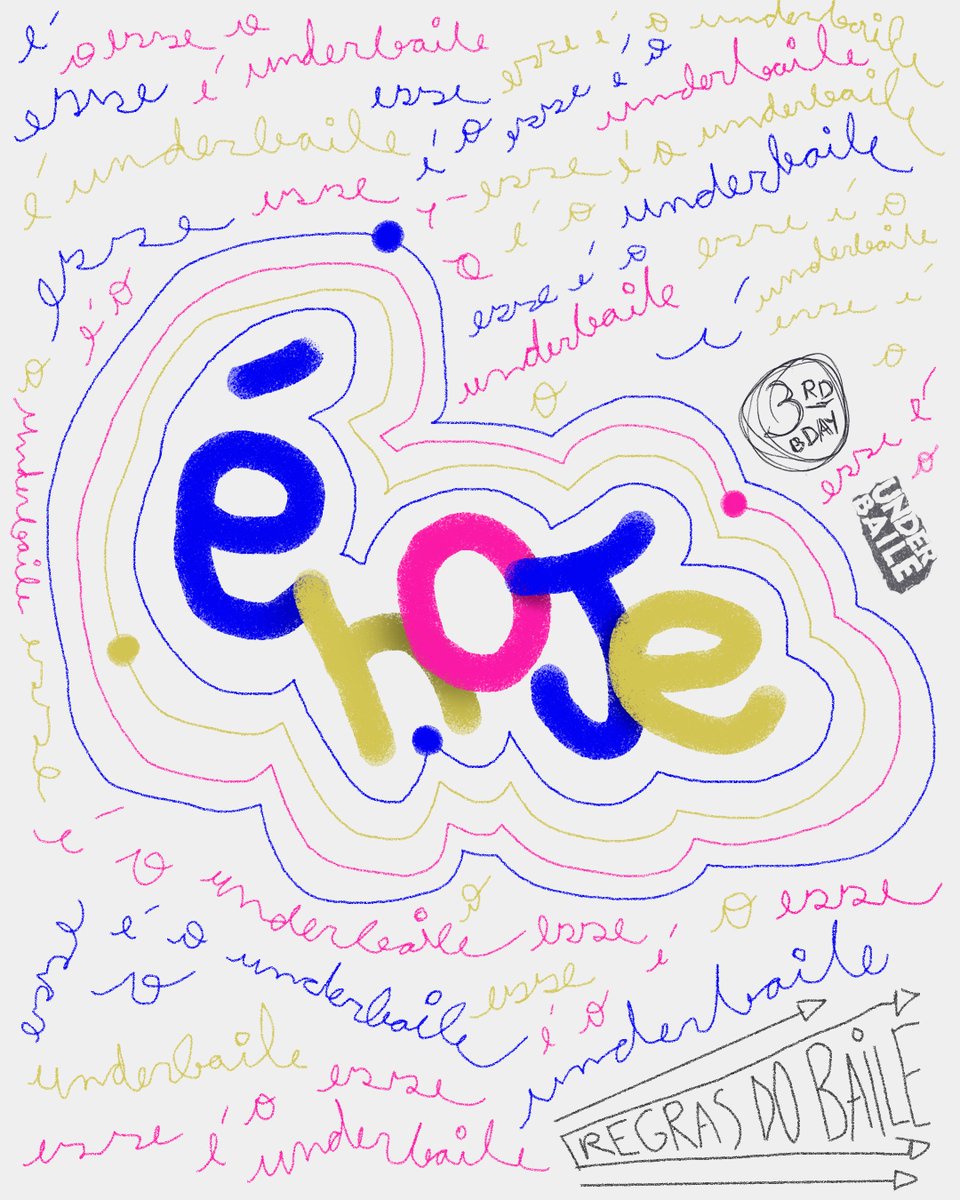 é o esse o
esse é underbaile
esse é o underbaile
esse é o esse é o
underbaile
é underbaile
esse é o underbaile
esse esse
é o underbaile
esse é o
é o
esse é o
underbaile
underbaile
esse é
é
o
o
3RD
BDAY
esse é o
é
UNDER
BAILE
o underbaile esse
é hoje
é o underbaile esse é o esse
o
esse é o underbaile esse
o
é o underbaile
underbaile esse
esse é o underbaile
REGRAS DO BAILE